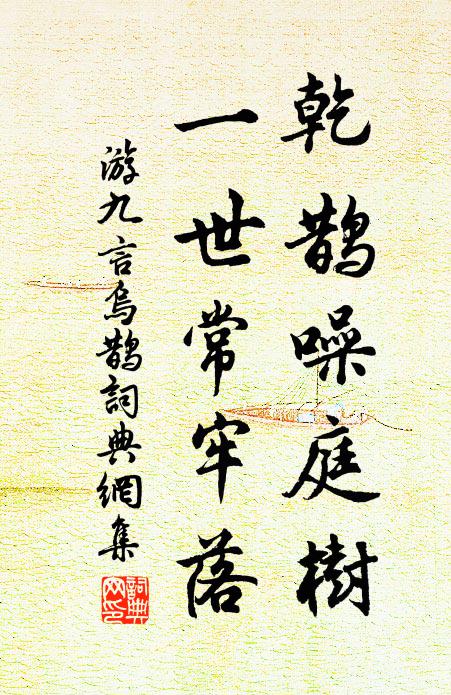 乾鹊噪庭樹
一世常牢落
游九言烏鹊詞典網集
詞典网印